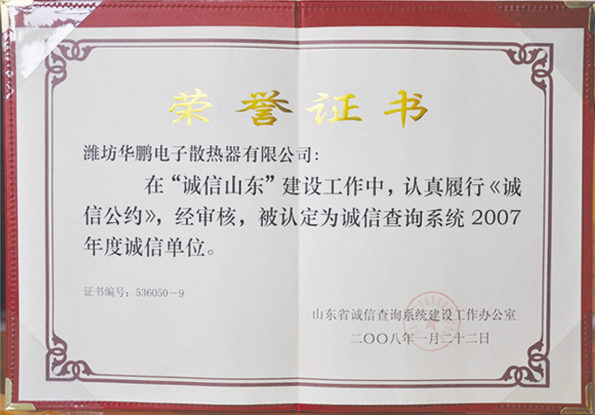 荣誉证书
潍坊华鹏电子散热器有限公司：
在“诚信山东”建设工作中，认真履行《诚
信公约》，经审核，被认定为诚信查询系统2007
年度诚信单位。
证书编号：536050-9
山东省诚信查询系统建设工作办公室
二〇〇八年一月二十二日